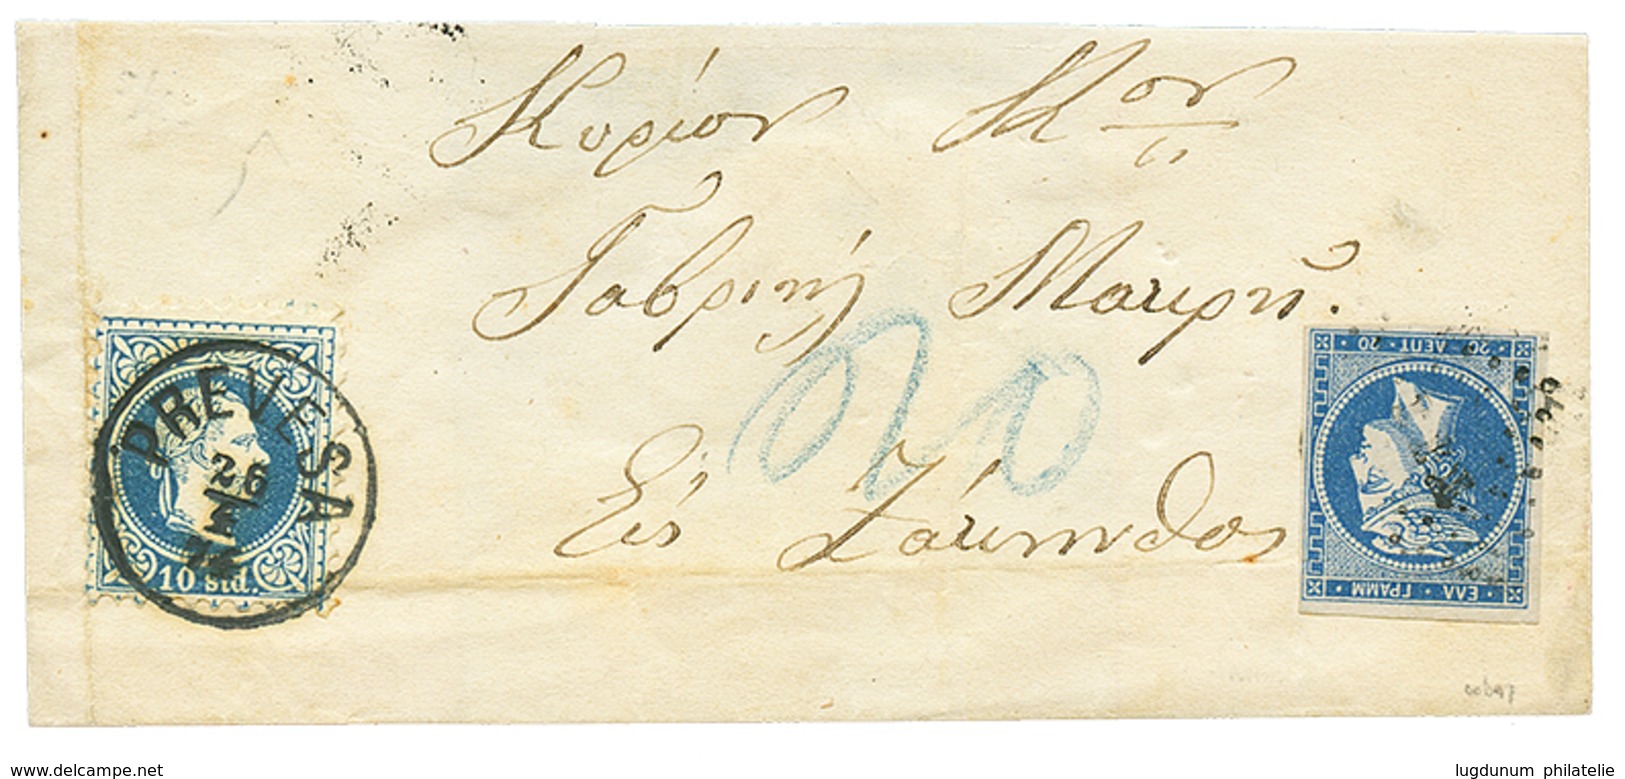 Κυρίον Κον
Γαβριὴλ Μαυρη.
20
Εἰς Ζάκυνθον
PREVESA
26
10 sld.
20 ΛΕΠΤ. 20
ΕΛΛ ΓΡΑΜΜ
www.delcampe.net
lugdunum philatelie